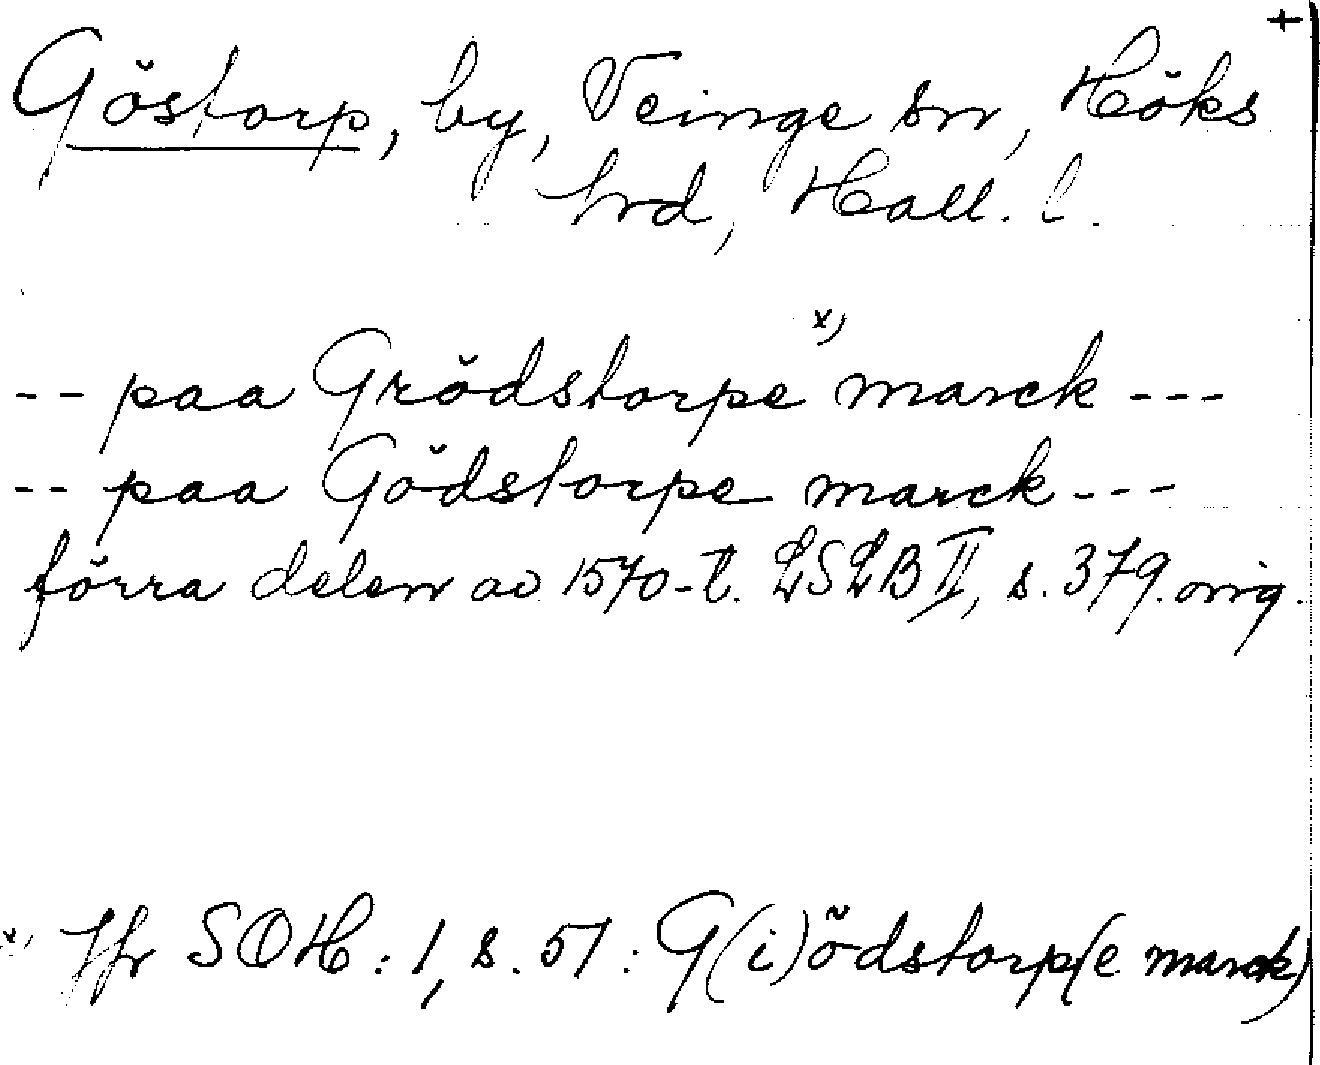 +
Göstorp, by, Veinge sn, Höks
hrd, Hall. l.
x)
-- paa Grödstorpe marck ---
-- paa Gödstorpe marck ---
förra delen av 1570-t. LSLB II, s. 379. orig.
x) Jfr SOH: 1, s. 51: G(i)ödstorp(e marck)